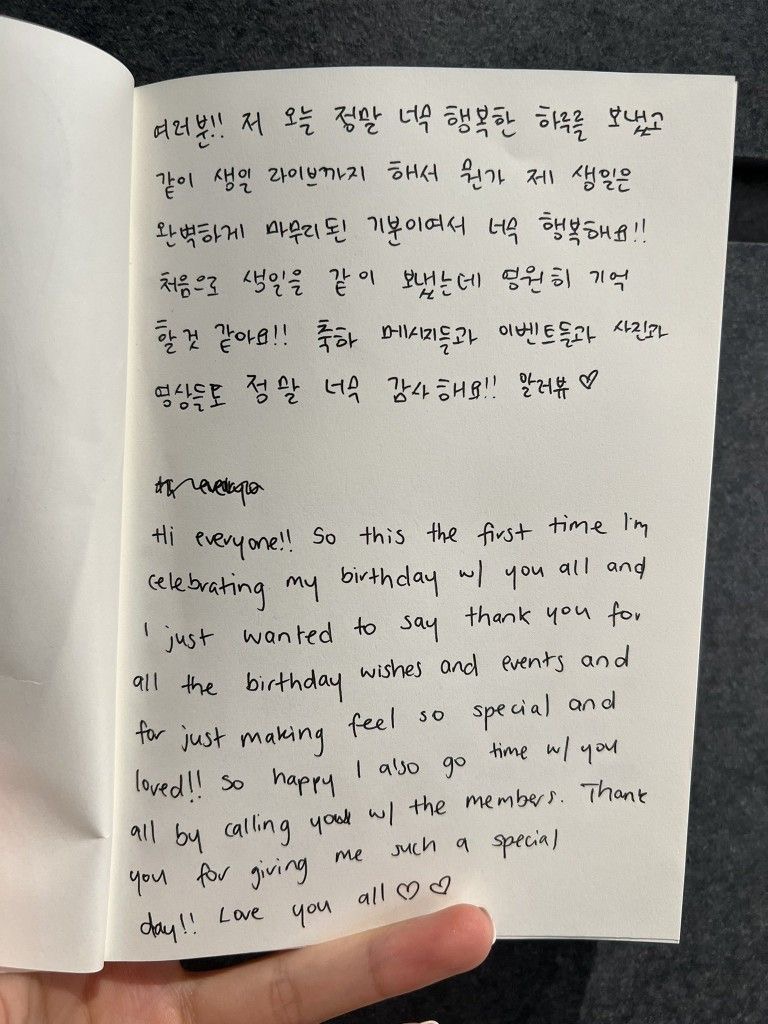 여러분!! 저 오늘 정말 너무 행복한 하루를 보냈고
같이 생일 라이브까지 해서 뭔가 제 생일은
완벽하게 마무리된 기분이여서 너무 행복해요!!
처음으로 생일을 같이 보냈는데 영원히 기억
할것 같아요!! 축하 메시지들과 이벤트들과 사진과
영상들도 정말 너무 감사해요!! 알러뷰 ♡
Hi everyone!! So this the first time I'm
celebrating my birthday w/ you all and
I just wanted to say thank you for
all the birthday wishes and events and
for just making feel so special and
loved!! So happy I also go time w/ you
all by calling you w/ the members. Thank
you for giving me such a special
day!! Love you all ♡ ♡